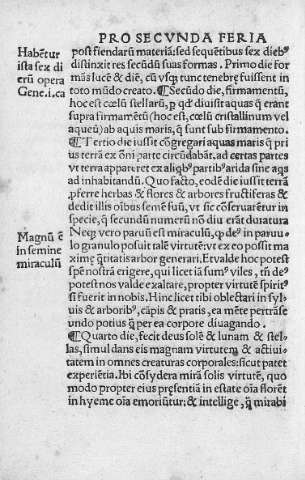 PRO SECVNDA FERIA
Habẽtur
ista sex di
erũ opera
Gene.i.ca
post fiendarum materiã: sed sequẽtibus sex dieb⁹
distinxit res secũdũ suas formas. Primo die for
mãs lucẽ & diẽ, cũ vsq; tunc tenebrę fuissent in
toto mũdo creato. ¶ Secũdo die, firmamentũ,
hoc est cœlũ stellarũ, p qd' diuisit aquas q̃ erant
supra firmamentũ (hoc est, cœlũ cristallinum vel
aqueũ) ab aquis maris, q̃ sunt sub firmamento.
¶ Tertio die iussit cõgregari aquas maris q̃ pri
us terra ex õni parte circũdabãt, ad certas partes
vt terra appareret ex aliqb⁹ partib⁹ arida sine aqs
ad inhabitandũ. Quo facto, eodẽ die iussit terrã
pferre herbas & flores & arbores fructiferas &
dedit illis oĩbus semẽ suũ, vt sic cõseruarẽtur in
specie, q̃ secundũ numerũ nõ diu erãt duratura
Magnũ ẽ
in semine
miraculũ
Neq; vero paruũ est miraculũ, qd' de⁹ in paruu-
lo granulo posuit talẽ virtutẽ: vt ex eo possit ma
ximę q̃ntitatis arbor generari. Et valde hoc potest
spẽ nostrã erigere, qui licet iã sum⁹ viles, tñ de⁹
potest nos valde exaltare, propter virtutẽ spirit⁹
si fuerit in nobis. Hinc licet tibi oblectari in syl-
uis & arborib⁹, cãpis & pratis, ea mẽte pertrãse
undo potius q̃ per ea corpore diuagando.
¶ Quarto die, fecit deus solẽ & lunam & stel-
las, simul dans eis magnam virtutem & actiui-
tatem in omnes creaturas corporales: sicut patet
experiẽtia. Ibi cõsydera mirã solis virtutẽ, quo
modo propter eius pręsentiã in estate oĩa florẽt
in hyeme oĩa emoriũtur: & intellige, q̃ mirabi